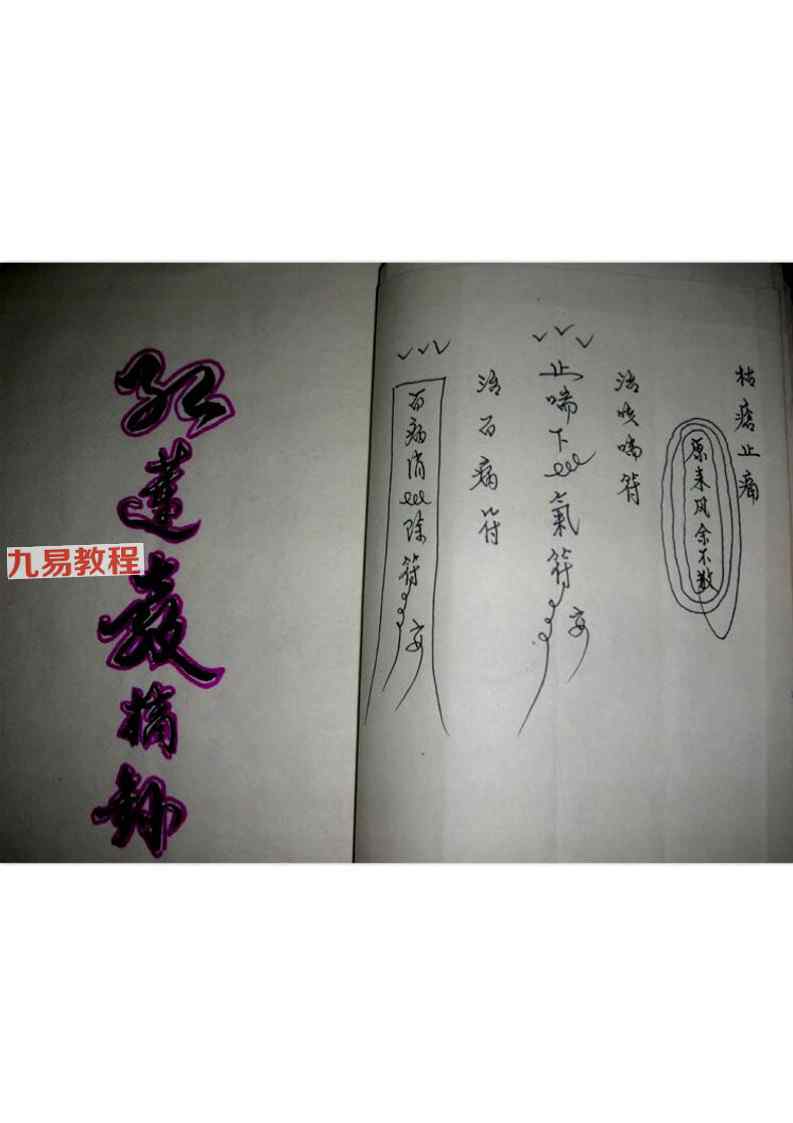 红莲教摘抄
九易教程
枯瘡止痛
原来风余不散
治咳喘符
止喘下氣符
安
治百病符
百病消除符
安